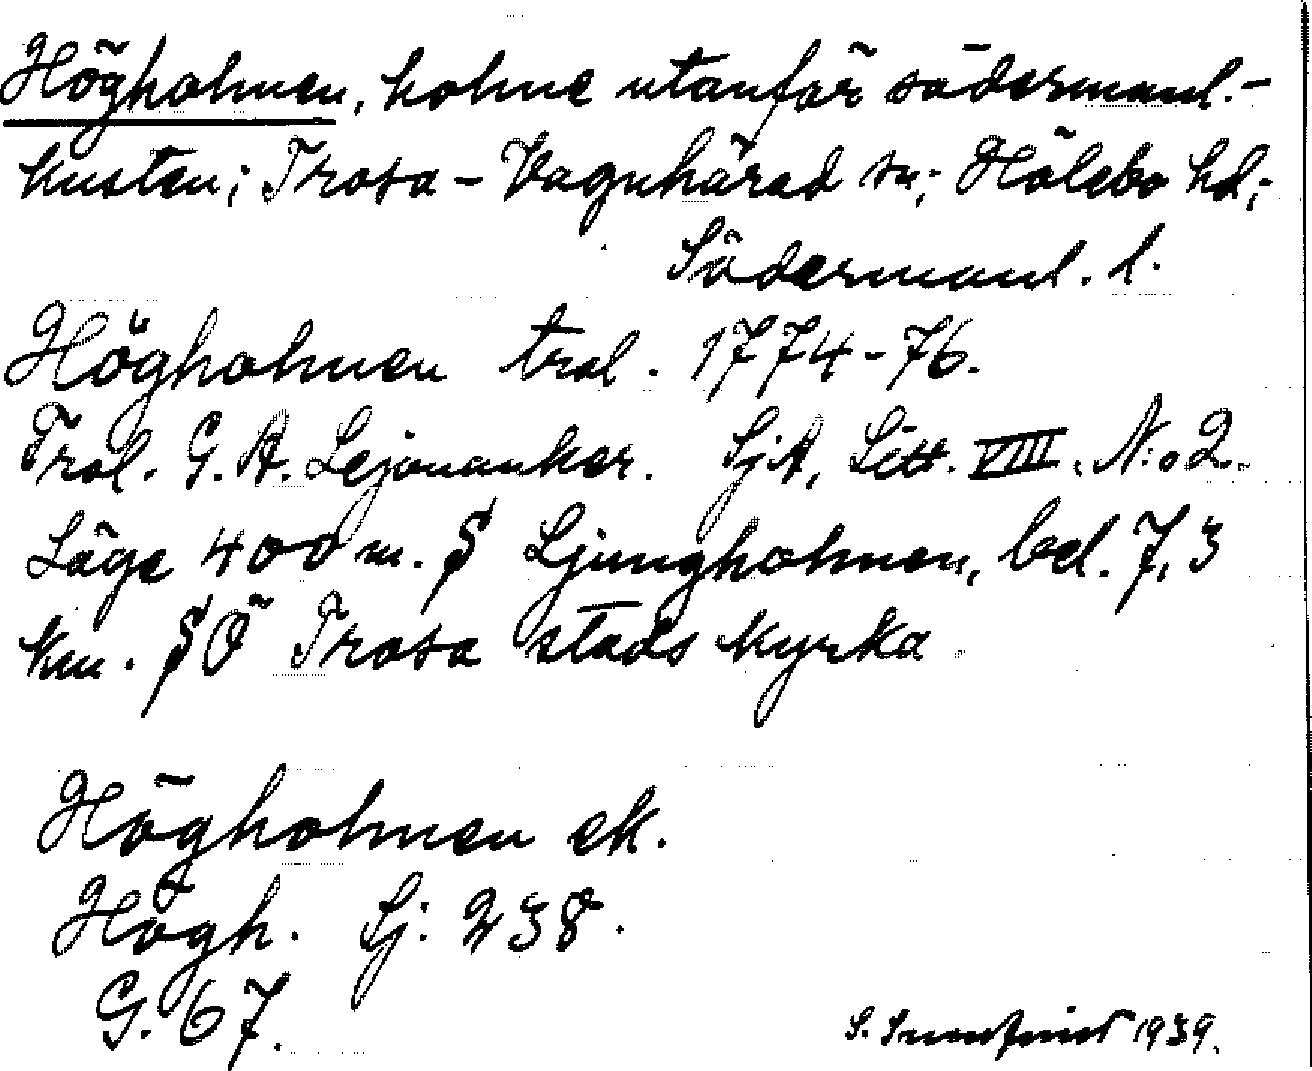 Högholmen, holme utanför södermanl.-
kusten; Trosa-Vagnhärad sn; Hölebo hd;
Södermanl. l.
Högholmen trol. 1774-76.
Trol. G. A. Lejonanker. SjA, Litt. VIII. N:o 2.
Läge 400 m. S Ljungholmen, bel. 7,3
km. SÖ Trosa stads kyrka.
Högholmen ek.
Högh. Sj: 238.
G. 67.
S. 1939.